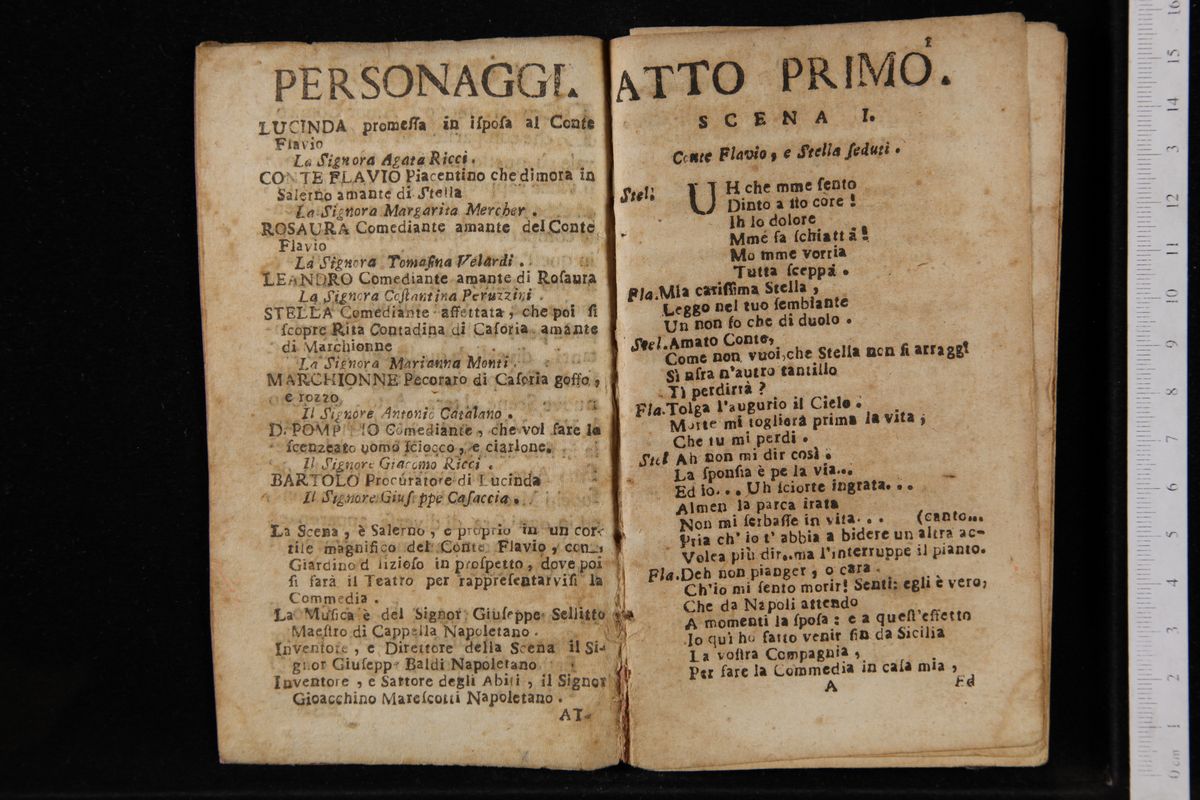 PERSONAGGI.
LUCINDA promeſſa in iſpoſa al Conte
Flavio
La Signora Agata Ricci.
CONTE FLAVIO Piacentino che dimora in
Salerno amante di Stella
La Signora Margarita Mercher.
ROSAURA Comediante amante del Conte
Flavio
La Signora Tomaſina Velardi.
LEANDRO Comediante amante di Roſaura
La Signora Coſtantina Peruzzini.
STELLA Comediante affettata, che poi ſi
ſcopre Rita Contadina di Caſoria amante
di Marchionne
La Signora Marianna Monti.
MARCHIONNE Pecoraro di Caſoria goffo,
e rozzo
Il Signore Antonio Catalano.
D. POMP IO Comediante, che vol fare lo
ſcenzeato uomo ſciocco, e ciarlone.
Il Signore Giacomo Ricci.
BARTOLO Procuratore di Lucinda
Il Signore Giuſeppe Caſaccia.
La Scena, è Salerno, e proprio in un cor-
tile magnifico del Conte Flavio, con
Giardino d lizioſo in proſpetto, dove poi
ſi farà il Teatro per rappreſentarviſi la
Commedia.
La Muſica è del Signor Giuſeppe Sellitto
Maeſtro di Cappella Napoletano.
Inventore, e Direttore della Scena il Si-
gnor Giuſeppe Baldi Napoletano
Inventore, e Sartore degli Abiti, il Signor
Gioacchino Mareſcotti Napoletano.
AT-
1
ATTO PRIMO.
SCENA I.
Conte Flavio, e Stella ſeduti.
Stel. UH che mme ſento
Dinto a ſto core!
Ih lo dolore
Mme fa ſchiattà!
Mo mme vorria
Tutta ſceppà.
Fla. Mia cariſſima Stella,
Leggo nel tuo ſembiante
Un non ſo che di duolo.
Stel. Amato Conte,
Come non vuoi, che Stella non ſi arraggi
Sì nfra n'autro tantillo
Ti perdirrà?
Fla. Tolga l'augurio il Cielo.
Morte mi toglierà prima la vita,
Che tu mi perdi.
Stel Ah non mi dir così.
La ſponſia è pe la via...
Ed io... Uh ſciorte ingrata...
Almen la parca irata
Non mi ſerbaſſe in vita... (canto...
Pria ch'io t'abbia a bidere un altra ac-
Volea più dir..ma l'interruppe il pianto.
Fla. Deh non pianger, o cara.
Ch'io mi ſento morir! Senti: egli è vero,
Che da Napoli attendo
A momenti la ſpoſa: e a queſt'effetto
Io quì ho fatto venir fin da Sicilia
La voſtra Compagnia,
Per fare la Commedia in caſa mia,
A Ed
0 cm 1 2 3 4 5 6 7 8 9 10 11 12 3 14 15 16